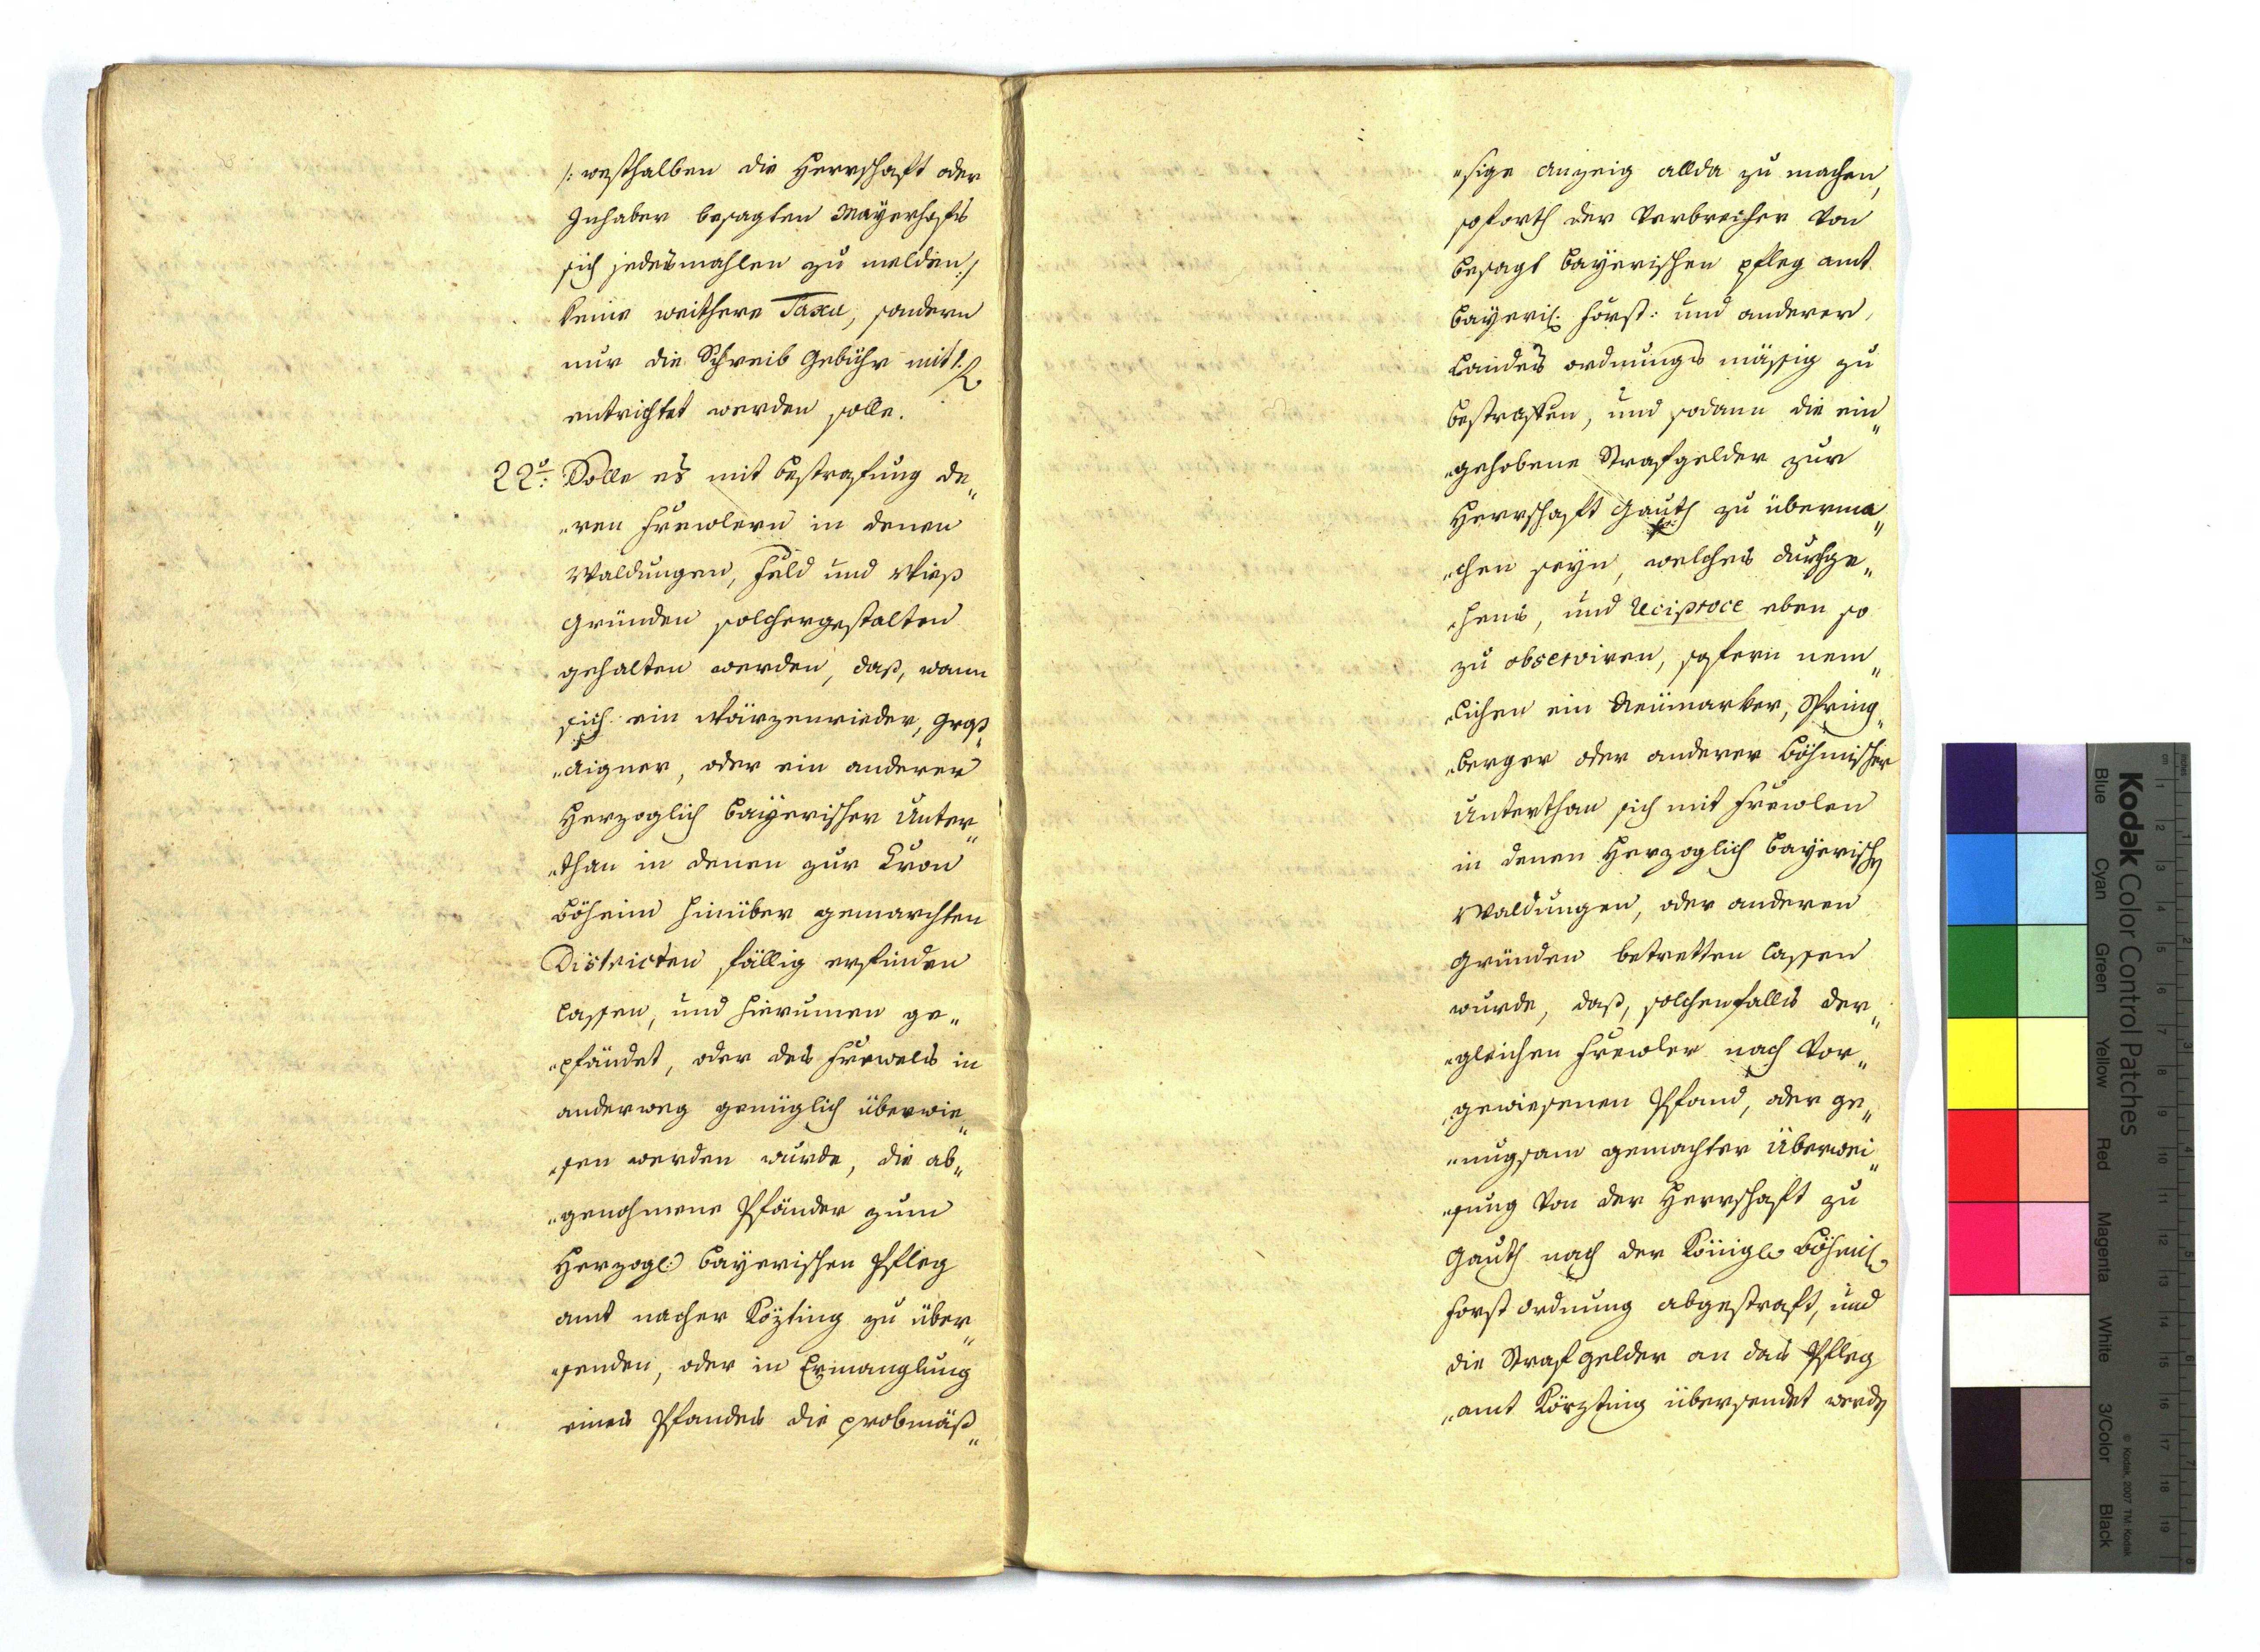 /: westhalben die Herrschaft oder
Inhaber besagten Mayerhofs
sich jedesmahlen zu melden :/
keine weithere Taxa, sondern
nur die Schreib Gebühr mit 1.
entrichtet werden solle.
22do: Solle es mit Bestrafung de„
„ren Frewlern in denen
Waldungen, Feld und Wieß
Gründen solchergestalten
gehalten werden, daß, wann
sich ein Wärzenrieder, Groß„
„Aigner, oder ein anderer
Herzoglich Bayerischer Unter„
„than in denen zur Cron
Böheim hinüber gemarchten
Districten fällig erfinden
lassen, und hierumen ge„
„pfändet, oder des Frewels in
anderweg genüglich überwie„
„sen werden wurde, die ab„
„genohmene Pfänder zum
Herzogl: Bayerischen Pfleg
amt nacher Közting zu über„
„senden, oder in Ermanglung
eines Pfandes die probmäß„
„sige Anzeig allda zu machen,
soforth der Verbrecher von
besagt Bayerischen Pfleg amt
Bayeris: Forst: und anderer
Landes ordnungs mässig zu
bestraffen, und sodann die ein„
„gehobene Strafgelder zur
Herrschaft Gauth zu überma„
„chen seyn, welches durchge„
„hens, und reciproce eben so
zu observiren, sofern nem„
„lichen ein Neumarker, Spring„
„berger oder anderer Böhmischer
Unterthan sich mit Frewlen
in denen Herzoglich Bayerischen
Waldungen, oder anderen
Gründen betretten lassen
wurde, daß, solchenfalls der„
„gleichen Frewler nach vor„
„gewiesenen Pfand, oder ge„
„nugsam gemachter Überwei„
„sung von der Herrschaft zu
Gauth nach der Königl. Böhmis.
Forst ordnung abgestraft, und
die Straf gelder an das Pfleg
„amt Közting übersendet werden
Kodak Color Control Patches
Blue Cyan Green Yellow Red Magenta White 3/Color Black
© Kodak, 2007 TM: Kodak